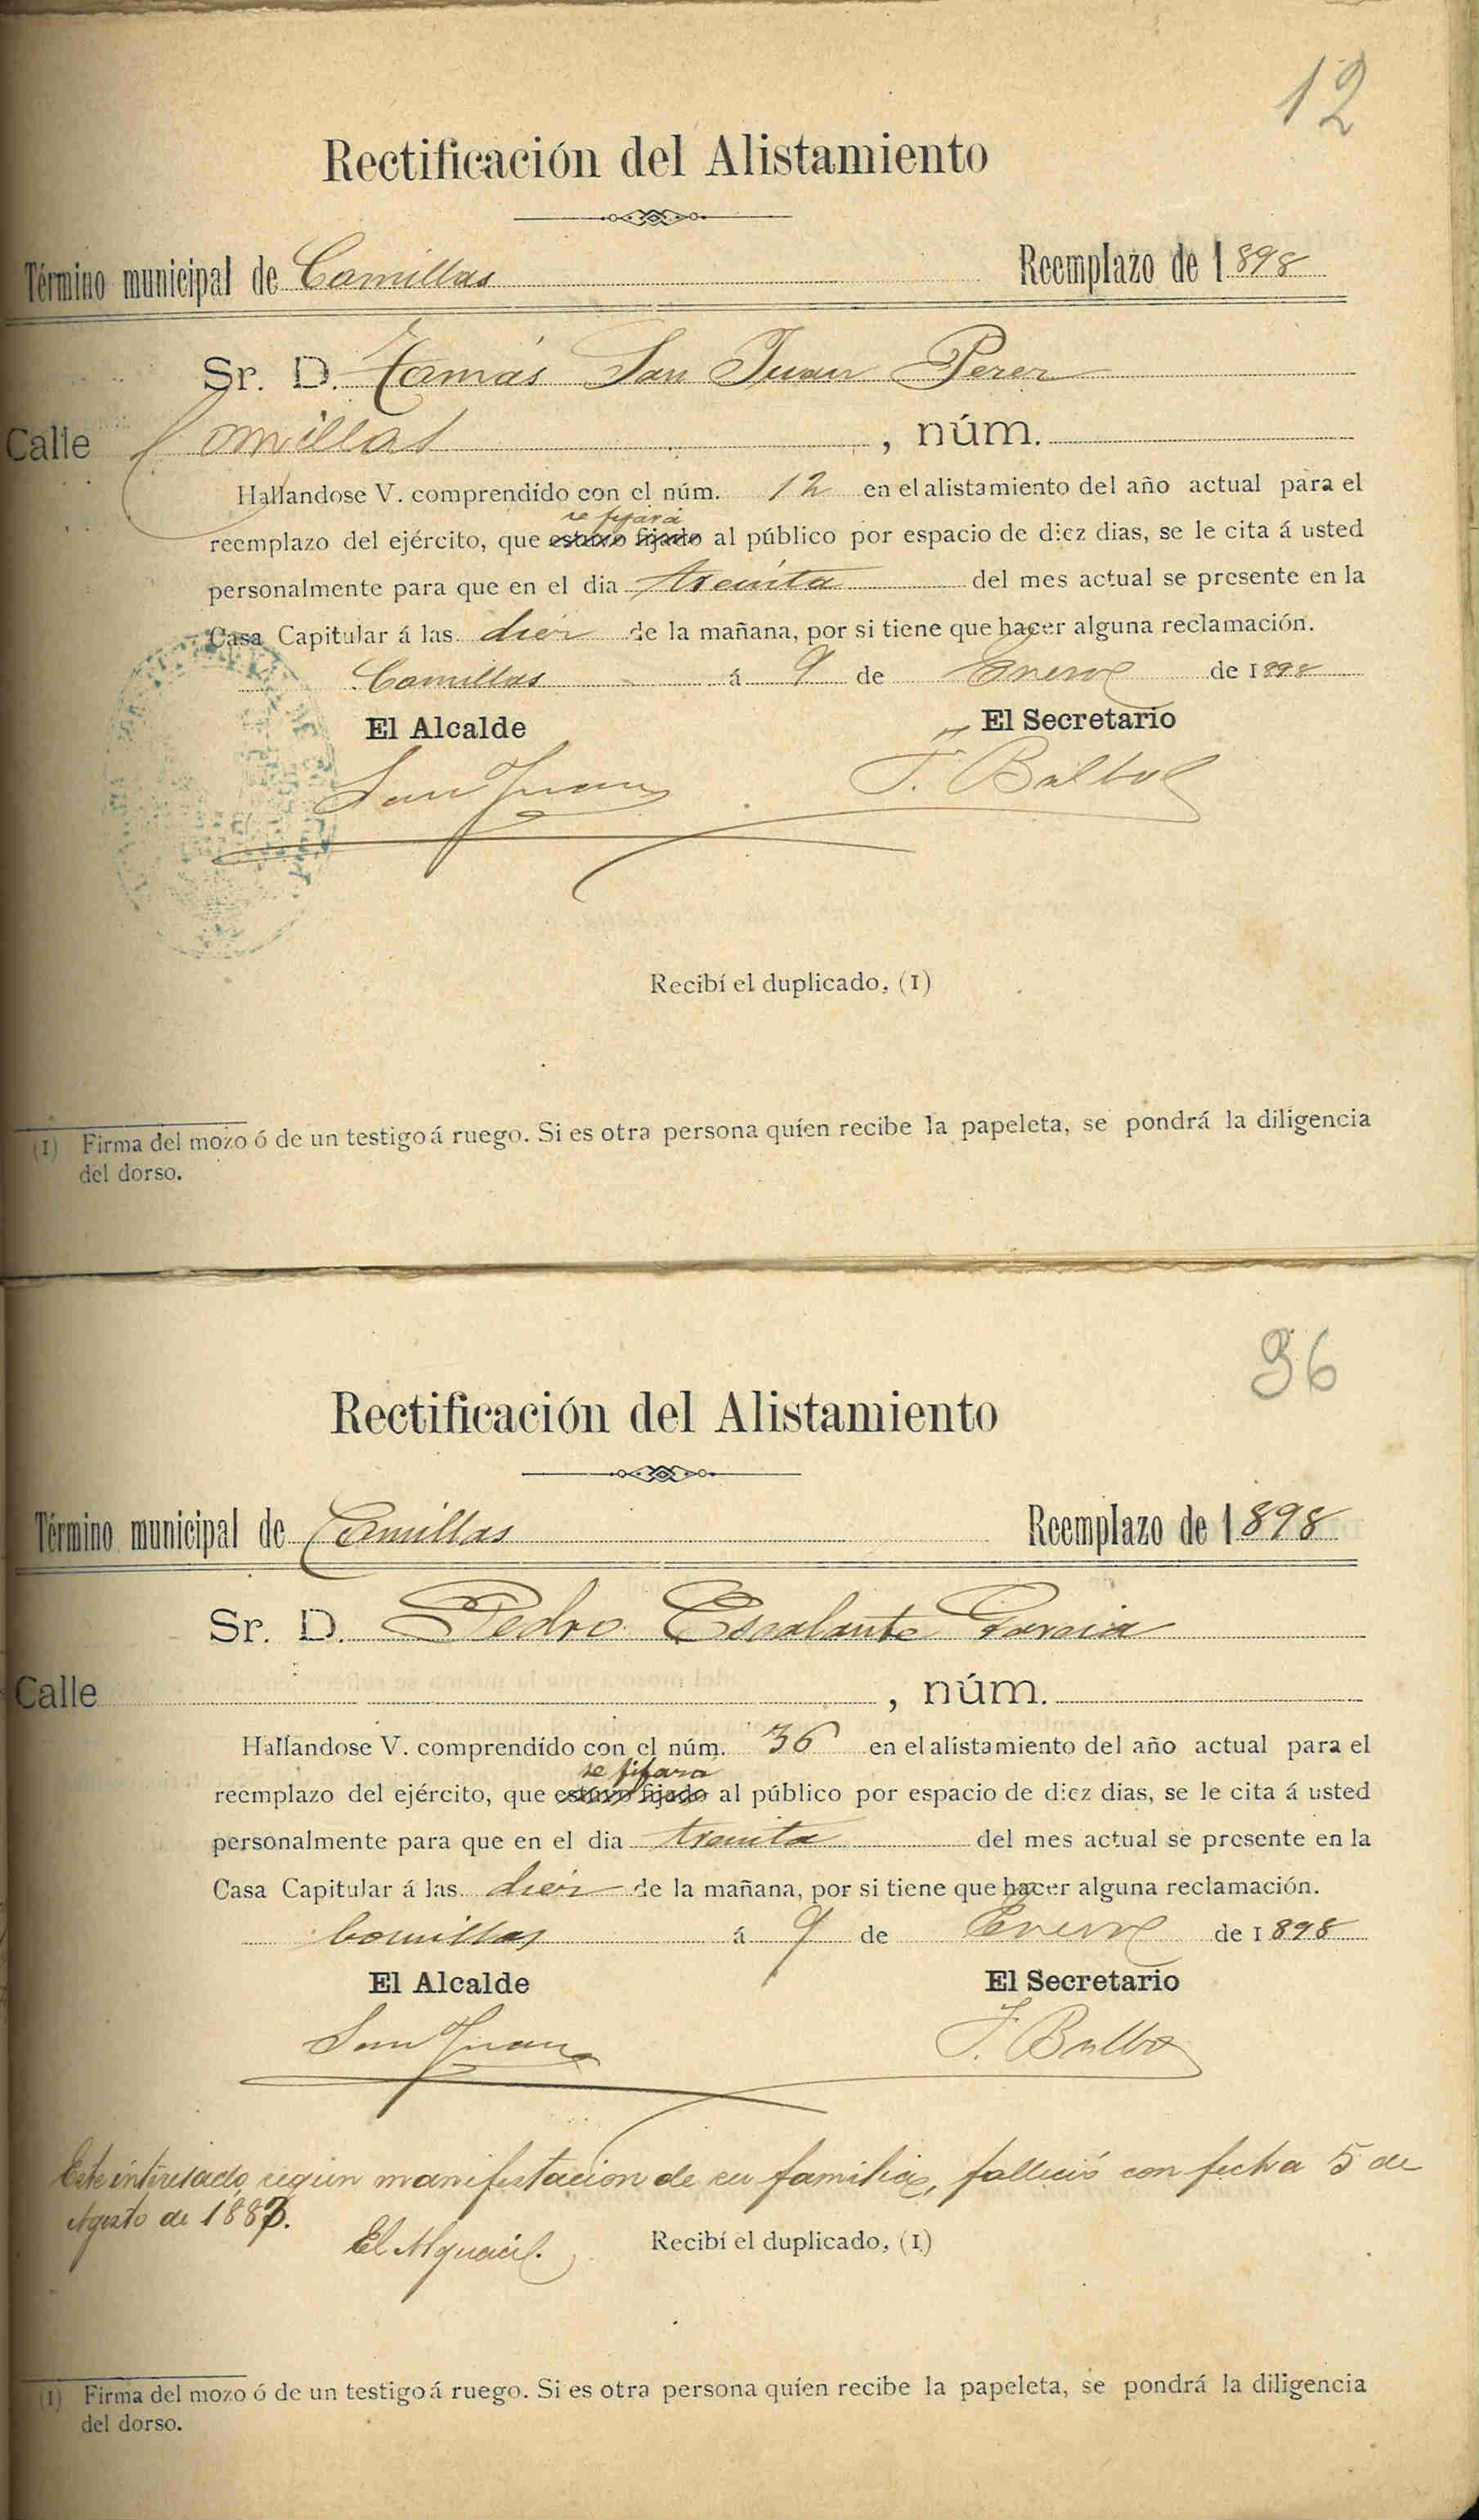 12
Rectificación del Alistamiento
Término municipal de Comillas Reemplazo de 1898
Sr. D. Tomás San Juan Perez
Calle Comillas, núm.
Hallandose V. comprendido con el núm. 12 en el alistamiento del año actual para el
se fijará
reemplazo del ejército, que estuvo fijado al público por espacio de diez dias, se le cita á usted
personalmente para que en el dia treinta del mes actual se presente en la
Casa Capitular á las diez de la mañana, por si tiene que hacer alguna reclamación.
Comillas á 9 de Enero de 1898
El Alcalde El Secretario
San Juan F. Balbo
Recibí el duplicado, (1)
(1) Firma del mozo ó de un testigo á ruego. Si es otra persona quíen recibe la papeleta, se pondrá la diligencia
del dorso.
36
Rectificación del Alistamiento
Término municipal de Comillas Reemplazo de 1898
Sr. D. Pedro Escalante Garcia
Calle , núm.
Hallandose V. comprendido con el núm. 36 en el alistamiento del año actual para el
se fijara
reemplazo del ejército, que estuvo fijado al público por espacio de diez dias, se le cita á usted
personalmente para que en el dia treinta del mes actual se presente en la
Casa Capitular á las diez de la mañana, por si tiene que hacer alguna reclamación.
Comillas á 9 de Enero de 1898
El Alcalde El Secretario
San Juan F. Balbo
Este interesado, segun manifestacion de su familia, falleció con fecha 5 de
Agosto de 1883.
El Alguacil. Recibí el duplicado, (1)
(1) Firma del mozo ó de un testigo á ruego. Si es otra persona quíen recibe la papeleta, se pondrá la diligencia
del dorso.